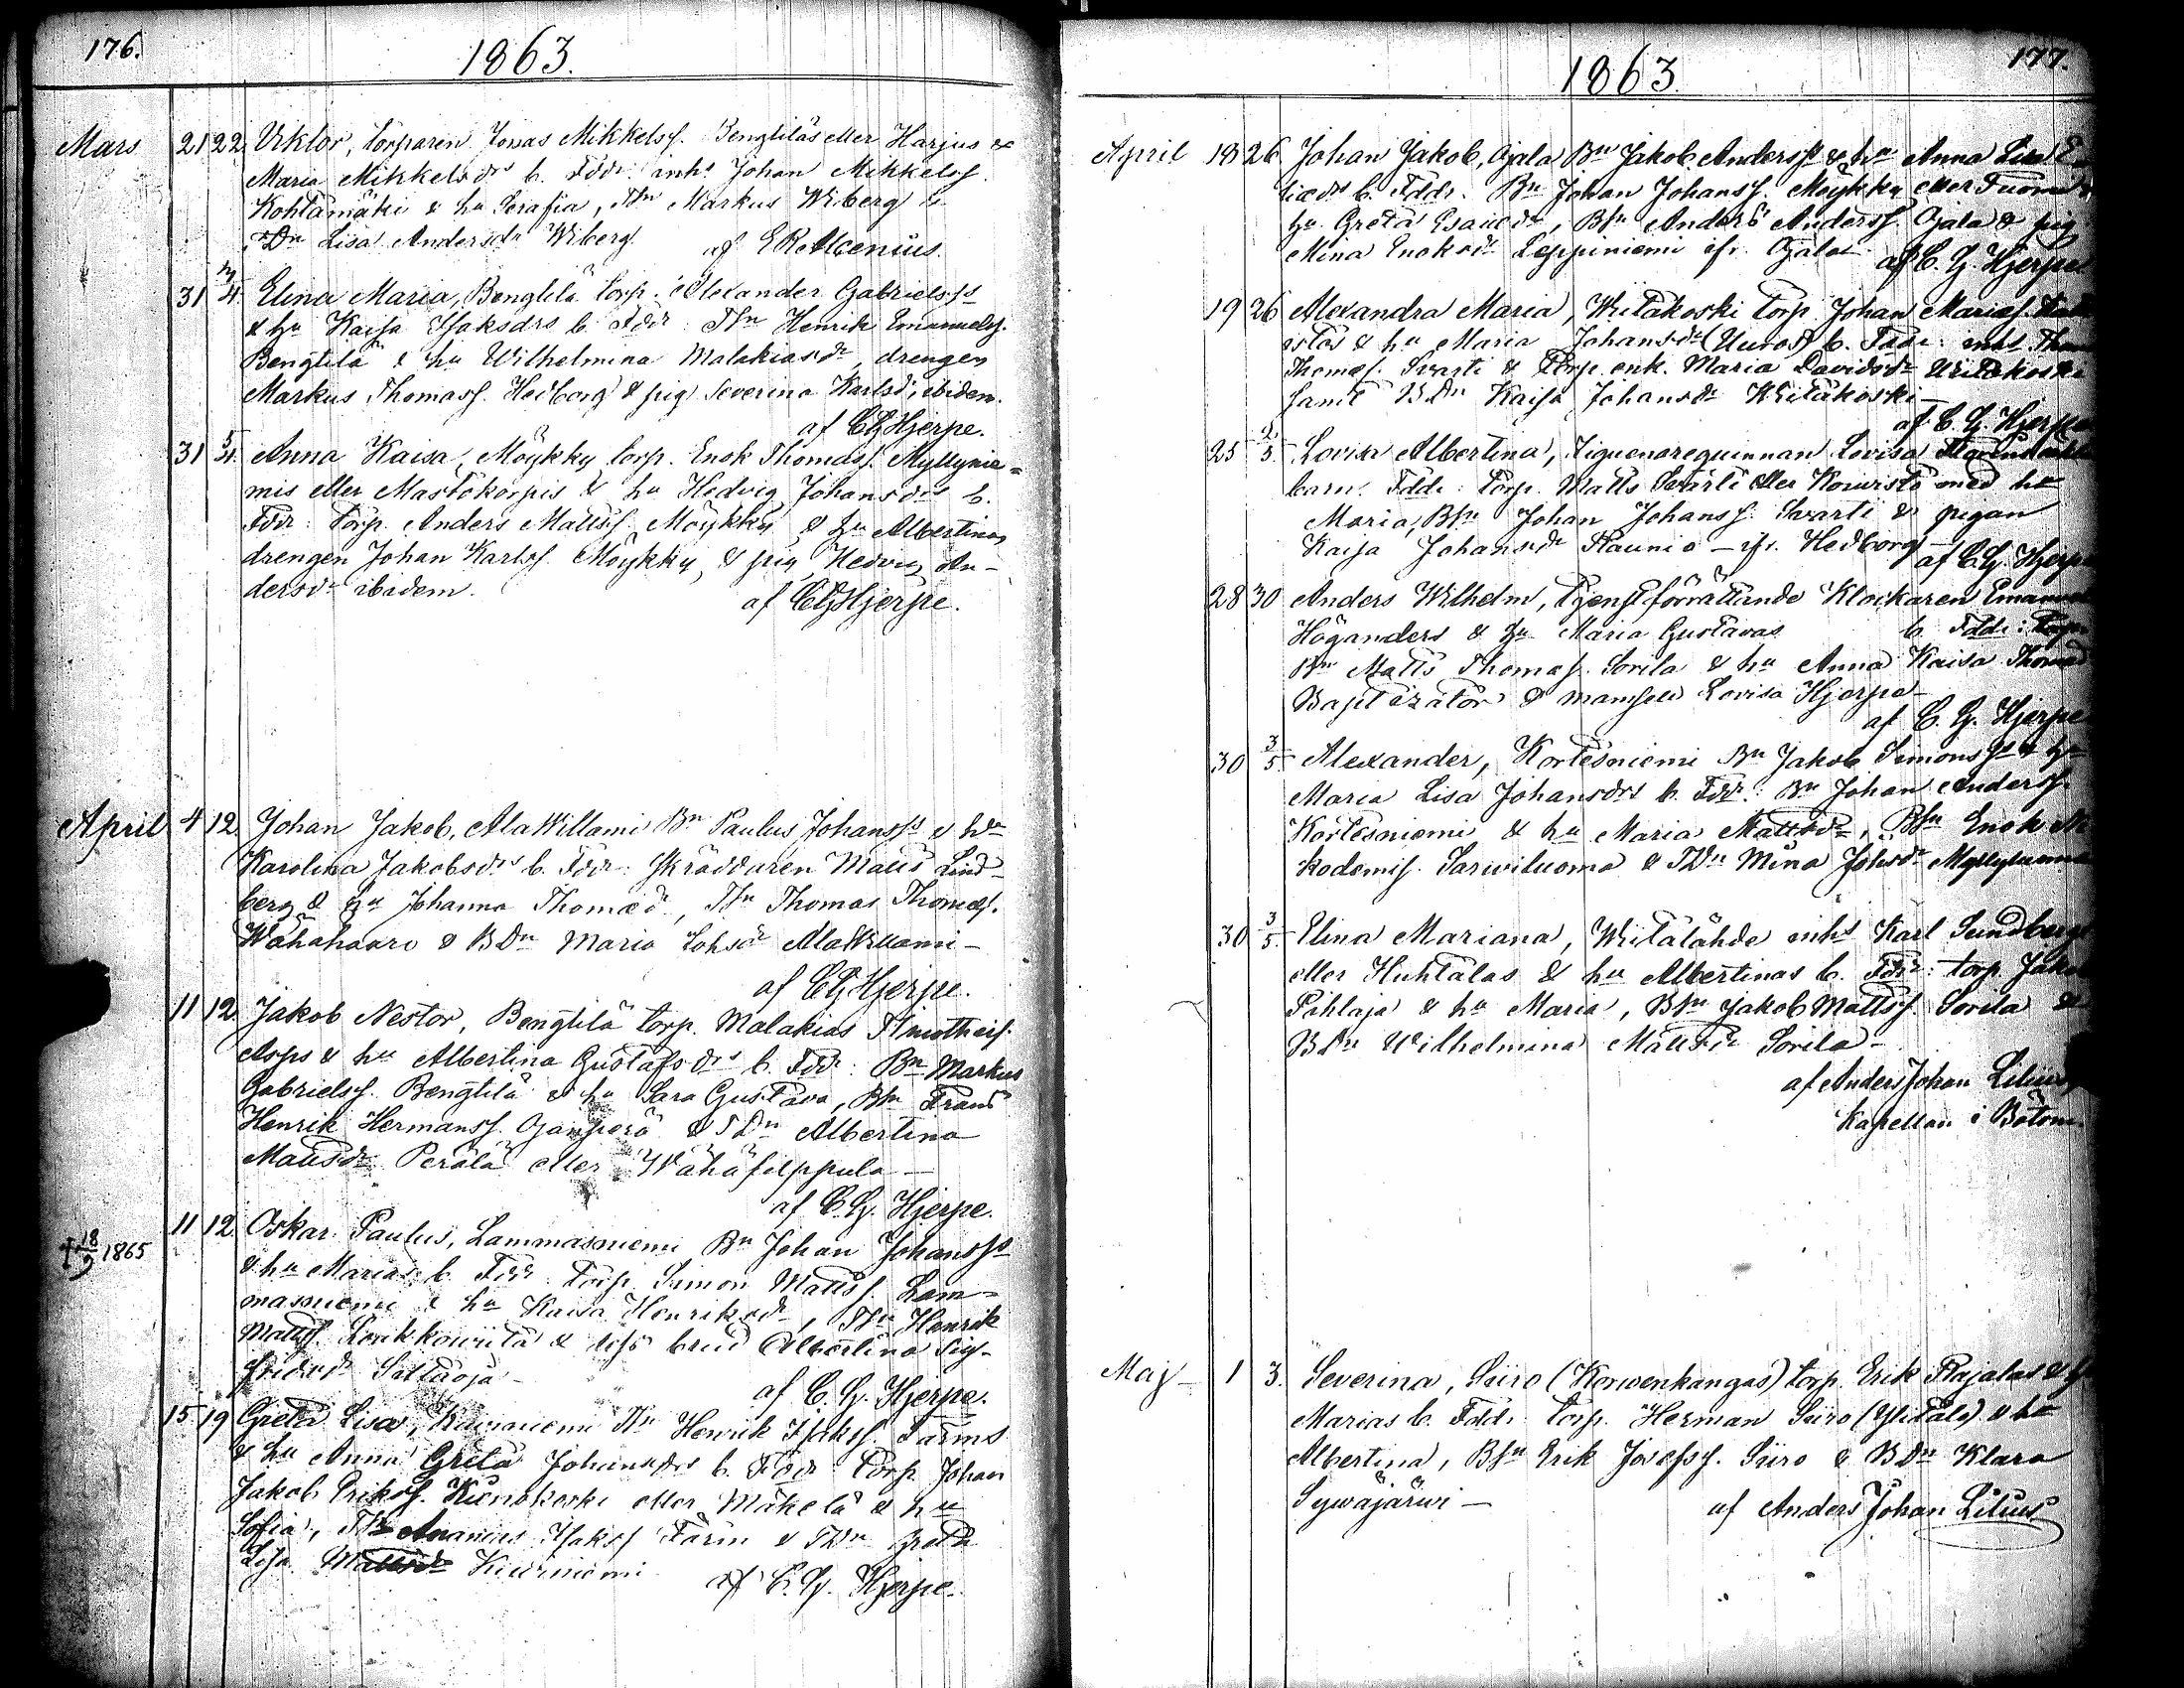 176.
1863.
Mars 21 22 Viktor, torparen Jonas Mikkelss. Bengtiläs eller Harjus &
Maria Mikkelsdrs b. Fddr: inhs Johan Mikkelss.
Kohtamäki & hu Serafia, Tsn Markus Wiberg &
TDn Lisa Andersdr Wiberg. af
31 3/4. Elina Maria, Bengtilä torp. Alexander Gabrielss
& hu Kajsa Isaksdrs b. Fddr: Tsn Henrik Emanuelss.
Bengtilä & hu Wilhelmina Malakiasdr, drengen
Markus Thomass. Hedborg & pig Severina Karlsdr, ibidem.
af CGHjerpe.
31 5/4. Anna Kaisa, Möykky torp. Enok Thomass. Myllynie-
mis eller Mastokorpis & hu Hedvig Johansdrs b.
Fddr: torp. Anders Mattss. Möykky & hu Albertina,
drengen Johan Karlss. Möykky, & pig Hedvig An-
dersdr ibidem. af CGHjerpe.
April 4 12. Johan Jakob, AlaWillami Bn Paulus Johanss & hu
Karolina Jakobsdrs b. Fddr: Skräddaren Matts Lind-
berg & hu Johanna Thomædr, Tsn Thomas Thomæs.
Wähähaaro & BDn Maria Johsdr AlaWillami-
af CGHjerpe.
11 12. Jakob Nestor, Bengtilä torp. Malakias Timotheis.
Asps & hu Albertina Gustafsdrs b. Fddr: Bn Markus
Gabrielss. Bengtilä & hu Sara Gustava, Bsn Frans
Henrik Hermanss. & TDn Albertina
Mattsdr Perälä eller Wähäfilppula-
af C.G. Hjerpe.
† 18/9 1865 11 12. Oskar Paulus, Lammasniemi Bn Johan Johanss
& hu Marias b. Fddr: torp. Simon Mattss. Lam-
masniemi & hu Kaisa Henriksdr, Tsn Henrik
Mattss. & dess brud Albertina Sig-
fridsdr Saltaoja-
af C.G. Hjerpe.
15 19 Greta Lisa, Tsn Henrik Isakss. Farms
& hu Anna Greta Johansdrs b. Fddr: torp. Johan
Jakob Erikss. eller Mäkelä & hu
Sofia, Tsn Ananias Isakss Farm & TDn Greta
Lisa Mattsdr
af C.G. Hjerpe.
177.
1863
April 18 26. Johan Jakob, Ojala Bn Jakob Anderss & hu Anna Lisa
b. Fddr: Bn Johan Johanss. Möykky eller
hu Greta Esaiædr, Bsn Anders Anderss. Ojala & pig
Mina Enoksdr Leppiniemi ifr. Ojala
af C.G. Hjerpe.
19 26 Alexandra Maria, Wiitakoski torp. Johan Mariæs.
& hu Maria Johansdrs b. Fddr: inhs
Thomæs. Svarti & Torp. enk. Maria Davidsdr Wiitakoski
samt BDn Kaisa Johansdr Wiitakoski-
af C.G. Hjerpe
25 2/5. Lovisa Albertina, Ziguenarequinnan Lovisa
barn. Fddr: torp. Matts Svarti eller Koivisto med hu
Maria, Bsn Johan Johanss. Svarti & pigan
Kaisa Johansdr Haunio - ifr. Hedborg-
af C.G. Hjerpe
28 30 Anders Wilhelm, Tjenstförrättande Klockaren
Höganders & hu Maria Gustavas b. Fddr:
Bn Matts Thomæs. Sorila & hu Anna Kaisa
Baptizator & mamsell Lovisa Hjerpe-
af C.G. Hjerpe
30 3/5. Alexander, Kortesniemi Bn Jakob Simonss & hu
Maria Lisa Johansdrs b. Fddr: Bn Johan Anderss.
Kortesniemi & hu Maria Mattsdr, Bsn Enok
kodemis. Sarviluoma & TDn Mina Johsdr
30 3/5. Elina Mariana, Wiitalähde inhs Karl Sundbergs
eller Huhtalas & hu Albertinas b. Fddr: torp.
Pihlaja & hu Maria, Bsn Jakob Mattss. Sorila &
BDn Wilhelmina Mattsdr Sorila-
af Anders Johan Lilius,
Kapellan i Bötom.
Maj- 1 3. Severina, Siiro (Korwenkangas) torp. Erik Rajalas & hu
Marias b. Fddr: torp. Herman Siiro (Ylitalo) & hu
Albertina, Bsn Erik Josefss. Siiro & BDn Klara
Sywäjärwi- af Anders Johan Lilius